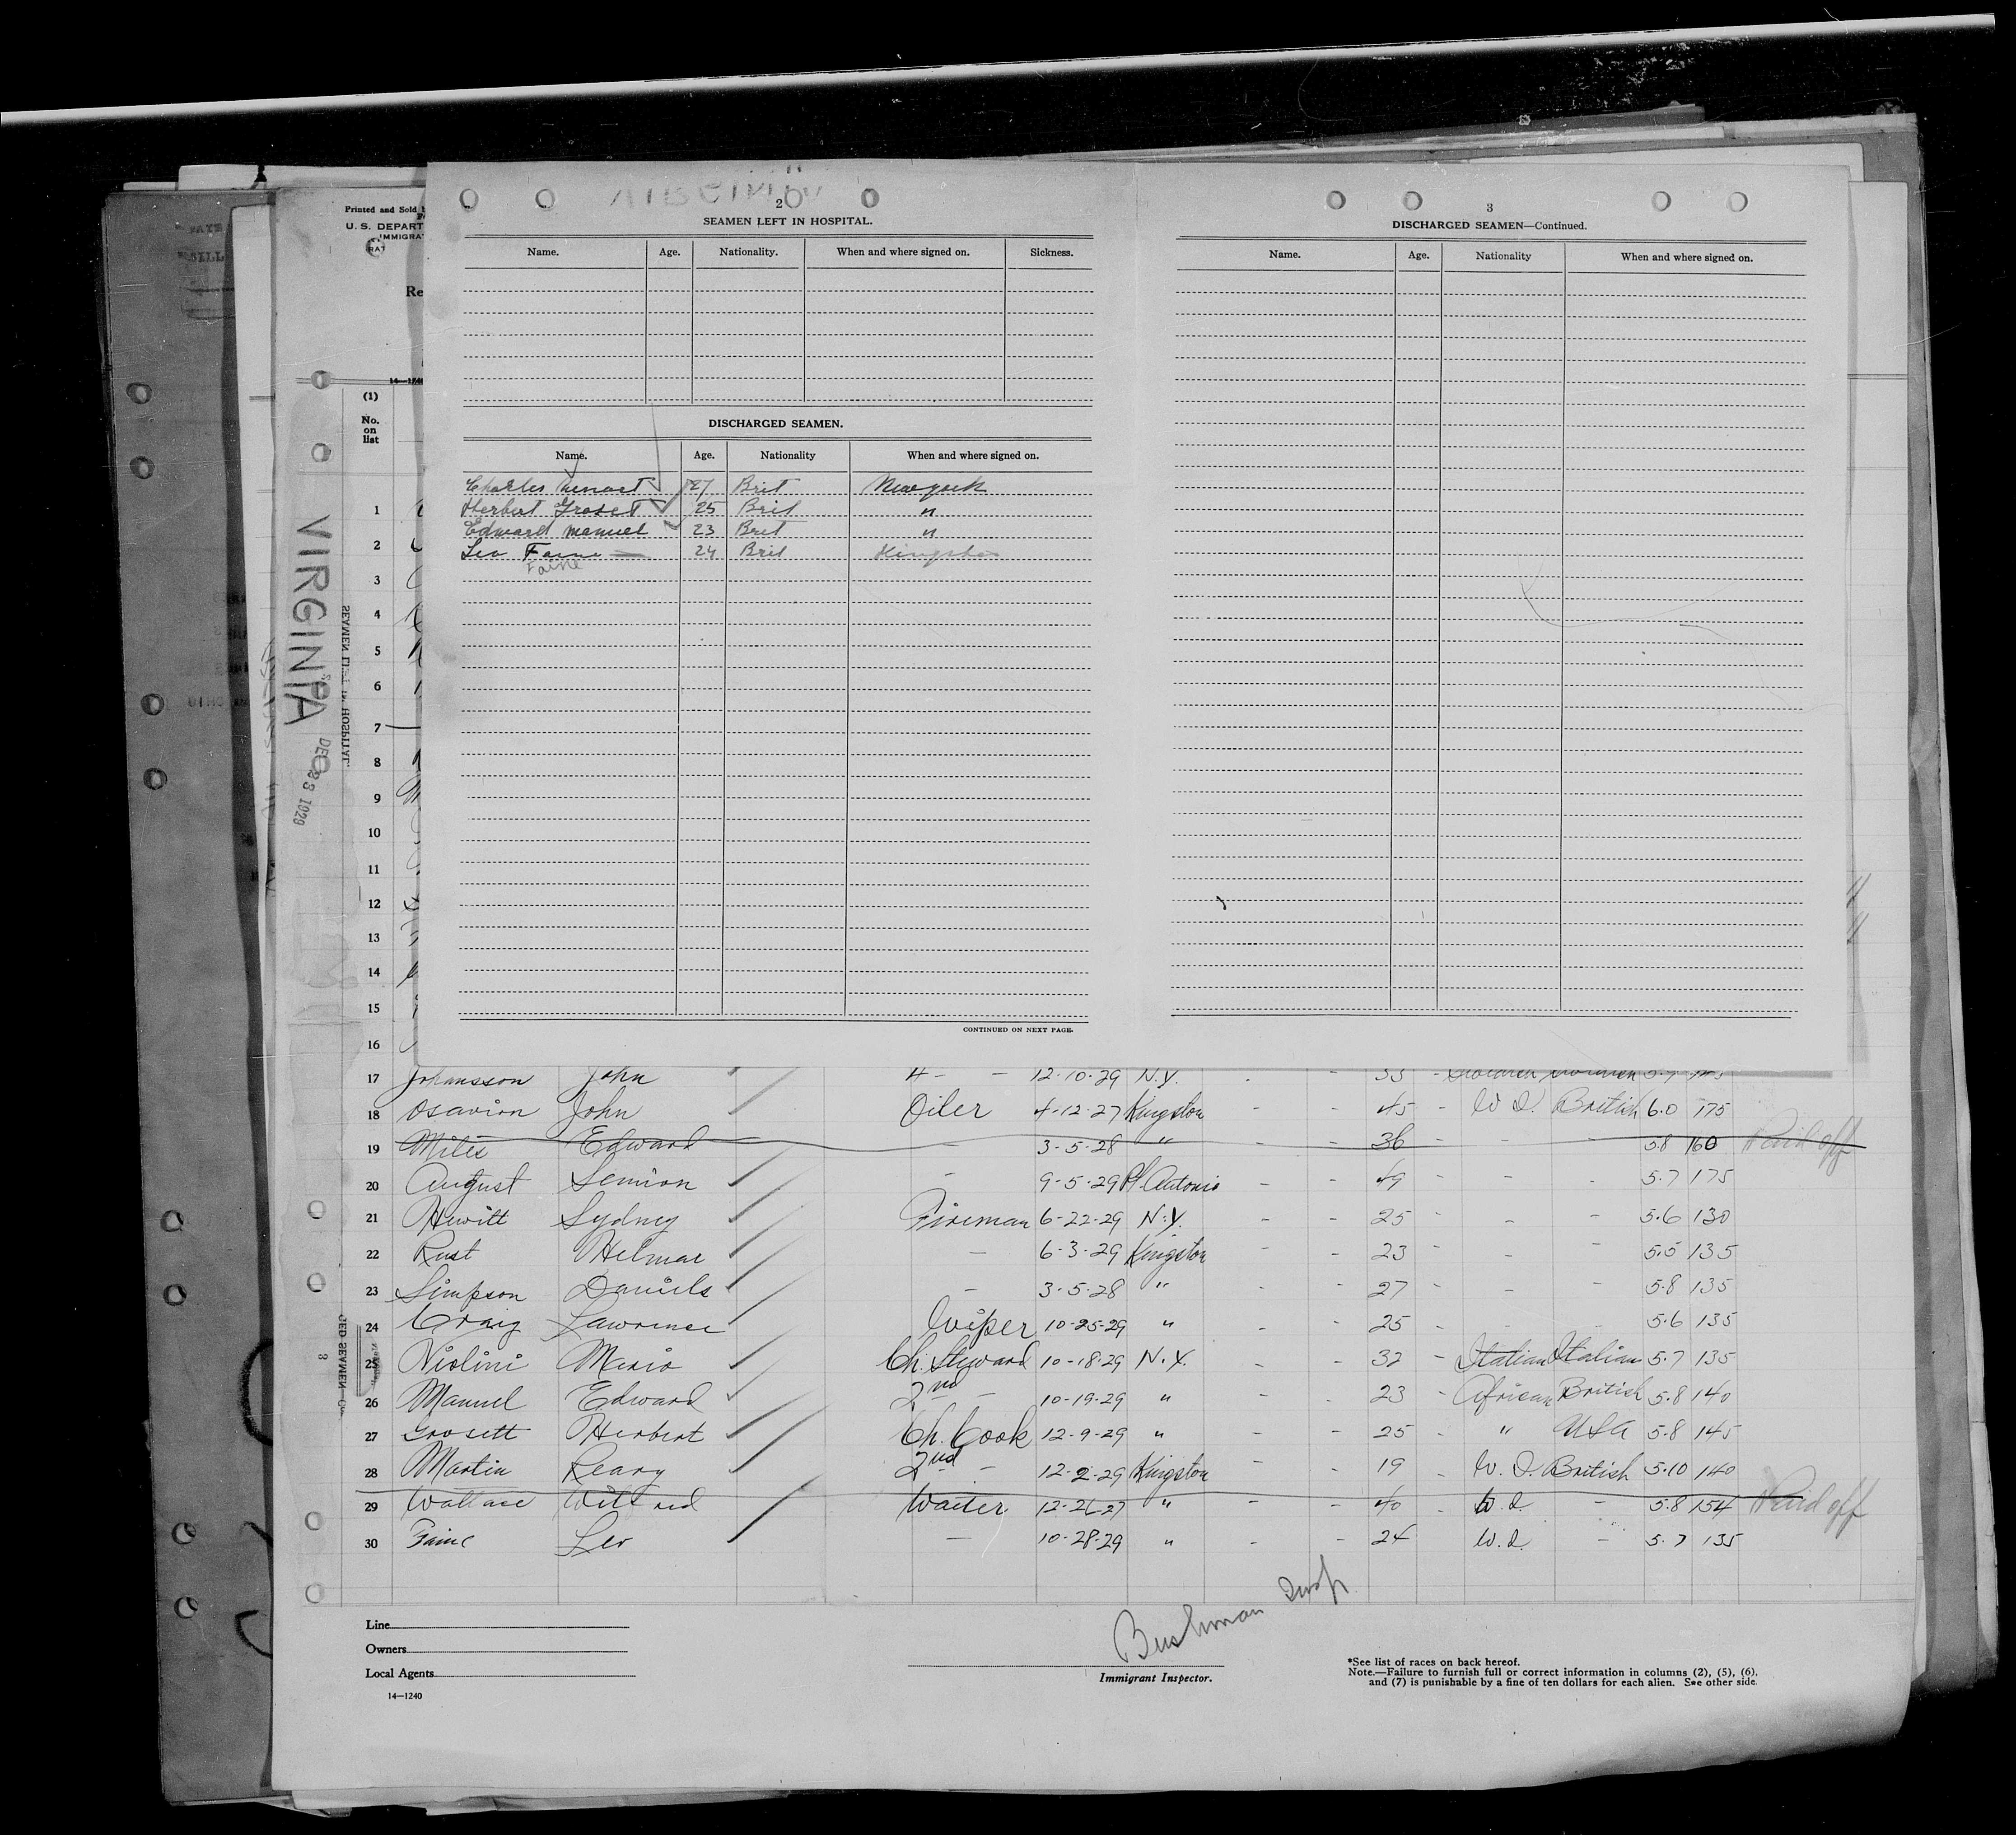 Printed and Sold
U. S. DEPART
IMMIGRA
Re
14—1240
VIRGINIA
DEC 28 1929
SEAMEN LEFT IN HOSPITAL
2
SEAMEN LEFT IN HOSPITAL.
Name. Age. Nationality. When and where signed on. Sickness.
DISCHARGED SEAMEN.
Name. Age. Nationality When and where signed on.
Charles 27 Brit New york
Herbert Groset 25 Brit "
Edward Manuel 23 Brit "
Leo Faine 24 Brit Kingston
Faine
CONTINUED ON NEXT PAGE.
3
DISCHARGED SEAMEN—Continued.
Name. Age. Nationality When and where signed on.
(1)
No. on list
1
2
3
4
5
6
7
8
9
10
11
12
13
14
15
16
17 Johansson John 12-10-29 N.Y. - 33 -
18 Osavion John Oiler 4-12-27 Kingston - - 45 - W I. British 6.0 175
19 Miles Edward - 3-5-28 " - - 36 - - - 5.8 160 Paid off
20 August Semion - 9-5-29 Pt. Antonio - - 49 - - - 5.7 175
21 Hewitt Sydney Fireman 6-22-29 N.Y. - - 25 - - - 5.6 130
22 Rust Helmar - 6-3-29 Kingston - - 23 - - - 5.5 135
23 Simpson Daniels - 3-5-28 " - - 27 - - - 5.8 135
24 Craig Lawrence Wiper 10-25-29 " - - 25 - - - 5.6 135
25 Violini Mario Ch. Steward 10-18-29 N.Y. - - 32 - Italian Italian 5.7 135
26 Manuel Edward 2nd - 10-19-29 " - - 23 - African British 5.8 140
27 Grosett Herbert Ch. Cook 12-9-29 " - - 25 - " USA 5.8 145
28 Martin Leary 2nd - 12-2-29 Kingston - - 19 - W. I. British 5.10 140
29 Wallace Waiter " - - 40 - W. I. - 5.8 154 Paid off
30 Faine Leo - 10-28-29 " - - 24 - W. I. - 5.7 135
Line
Owners
Local Agents
14—1240
Bushman Insp
Immigrant Inspector.
*See list of races on back hereof.
Note.—Failure to furnish full or correct information in columns (2), (5), (6),
and (7) is punishable by a fine of ten dollars for each alien. See other side.